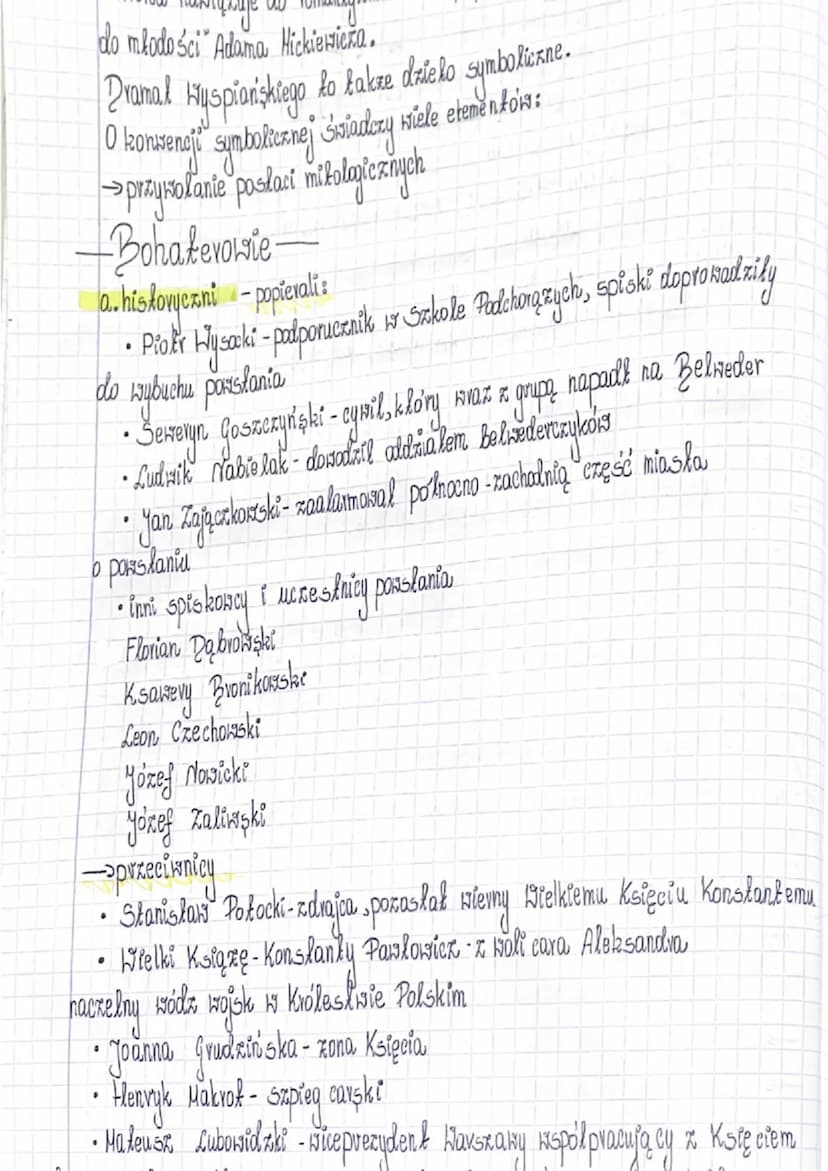 do młodości" Adama Mickiewicza.
Dramat Wyspiańskiego to także dzieło symboliczne.
O konwencji symbolicznej świadczy wiele elementów:
→przywołanie postaci mitologicznych
—Bohaterowie—
a.historyczni - popierali:
• Piotr Wysocki - podporucznik w Szkole Podchorążych, spiski doprowadziły
do wybuchu powstania
• Seweryn Goszczyński - cywil, który wraz z grupą napadł na Belweder
• Ludwik Nabielak - dowodził oddziałem belwederczyków
• Jan Zajączkowski - zaalarmował północno-zachodnią część miasta
o powstaniu
• inni spiskowcy i uczestnicy powstania
Florian Dąbrowski
Ksawery Bronikowski
Leon Czechowski
Józef Nowicki
Józef Zaliwski
→przeciwnicy
• Stanisław Potocki-zdrajca, pozostał wierny Wielkiemu Księciu Konstantemu
• Wielki Książę - Konstanty Pawłowicz - z woli cara Aleksandra
naczelny wódz wojsk w Królestwie Polskim
• Joanna Grudzińska - żona Księcia
• Henryk Makrot - szpieg carski
• Mateusz Lubowidzki - wiceprezydent Warszawy współpracujący z Księciem